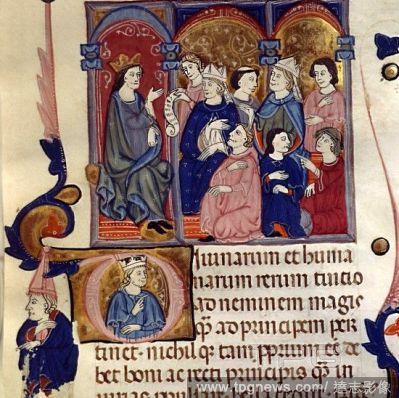 Iuinarum et huma
narum rerum tuitio
ad neminem magis
qꝫ ad principem per
tinet · nichil qꝫ tam ꝓprium eē de
bet boni ac recti principis qꝫ in
iurias
www.tpgnews.com/ 達志影像